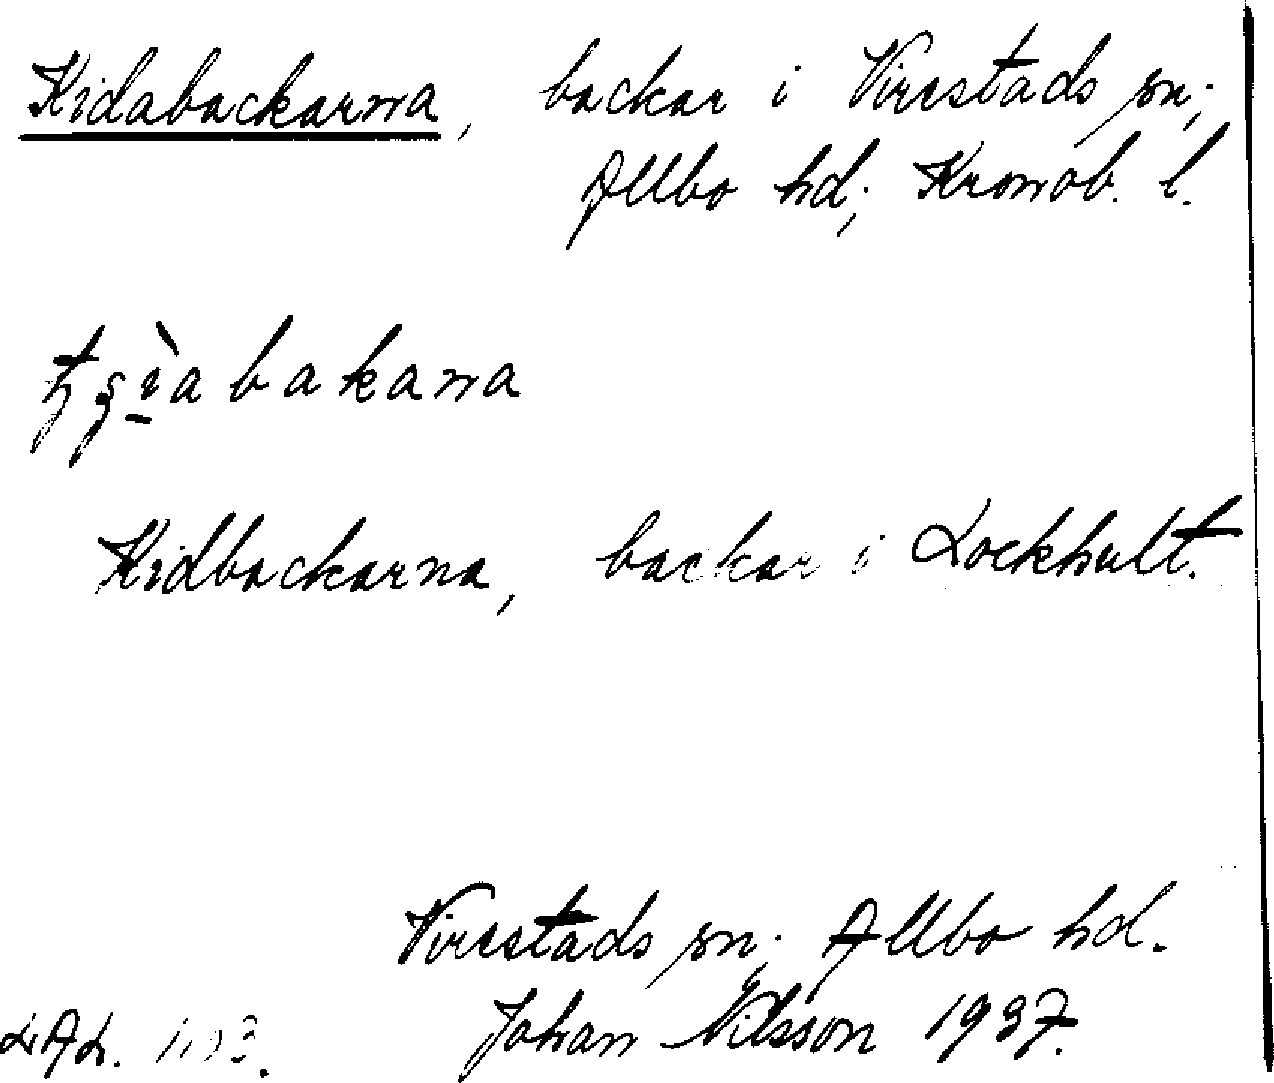 Kidabackarna, backar i Virestads sn;
Allbo hd; Kronob. l.
bakana
Kidbackarna, backar i Lockhult.
Virestads sn; Allbo hd.
Johan Nilsson 1937.
LAL.